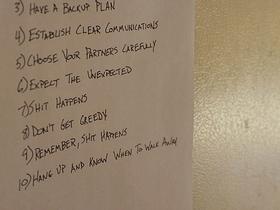 3) HAVE A BACKUP PLAN
4) ESTABLISH CLEAR COMMUNICATIONS
5) CHOOSE YOUR PARTNERS CAREFULLY
6) EXPECT THE UNEXPECTED
7) SHIT HAPPENS
8) DON'T GET GREEDY
9) REMEMBER, SHIT HAPPENS
10) HANG UP AND KNOW WHEN TO WALK AWAY